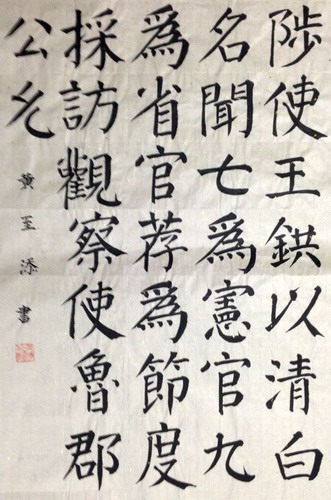 陟使王鉷以清白
名聞七爲憲官九
爲省官荐爲節度
採訪觀察使魯郡
公允
黄至添書